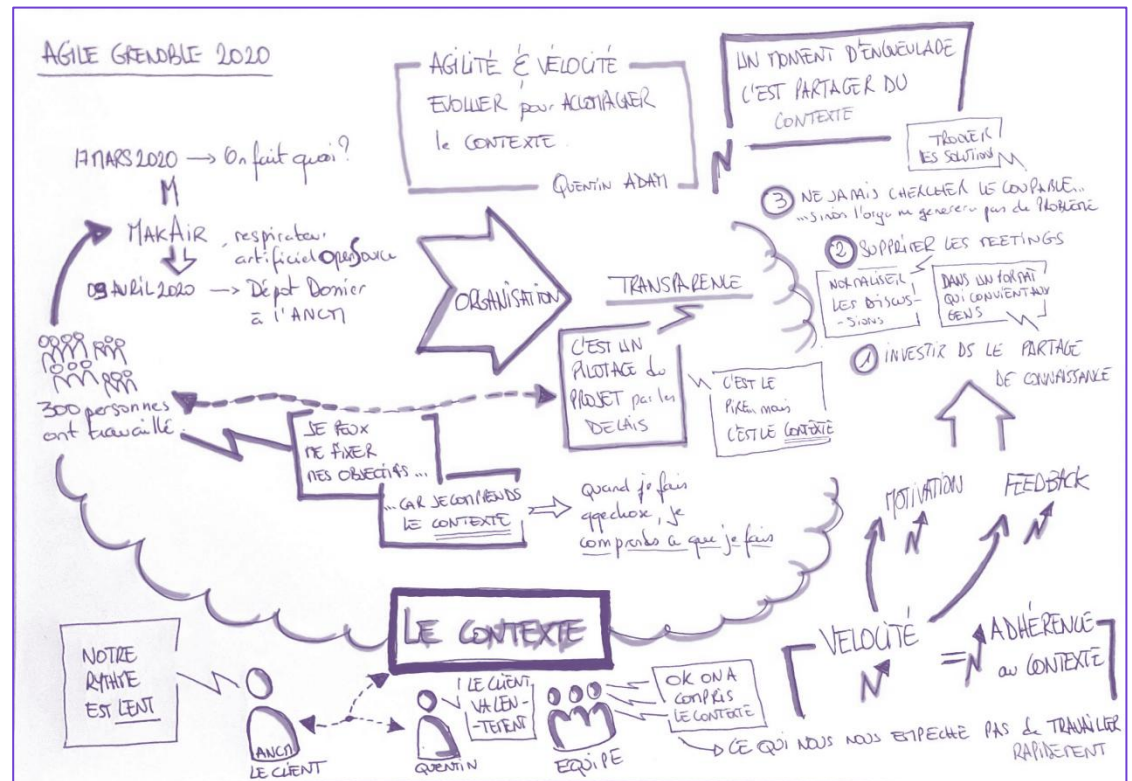 AGILE GRENOBLE 2020
AGILITÉ & VÉLOCITÉ
EVOLUER pour ACCOMPAGNER
le CONTEXTE
QUENTIN ADAM
UN MOMENT D'ENGUEULADE
C'EST PARTAGER DU
CONTEXTE
TROUVER
LES SOLUTIONS
17 MARS 2020 → On fait quoi?
MAKAIR, respirateur
artificiel OpenSource
09 AVRIL 2020 → Dépot Dossier
à l'ANCM
300 personnes
ont travaillé.
ORGANISATION
TRANSPARENCE
C'EST UN
PILOTAGE du
PROJET par les
DELAIS
C'EST LE
PIRE... mais
C'EST LE CONTEXTE
③ NE JAMAIS CHERCHER LE COUPABLE...
...sinon l'orga ne generera pas de PROBLÈME
② SUPPRIMER LES MEETINGS
NORMALISER
LES DISCUS-
-SIONS
DANS UN FORMAT
QUI CONVIENT AUX
GENS
① INVESTIR DS LE PARTAGE
DE CONNAISSANCE
JE PEUX
ME FIXER
MES OBJECTIFS...
...CAR JE COMPRENDS
LE CONTEXTE
Quand je fais
qqechose, je
comprends ce que je fais
MOTIVATION
FEEDBACK
LE CONTEXTE
VELOCITÉ
= ADHÉRENCE
au CONTEXTE
NOTRE
RYTHME
EST LENT
ANCM
LE CLIENT
! LE CLIENT
VA LEN-
-TEMENT
QUENTIN
EQUIPE
OK ON A
COMPRIS
LE CONTEXTE
→ CE QUI NOUS NOUS EMPECHE PAS de TRAVAILLER
RAPIDEMENT